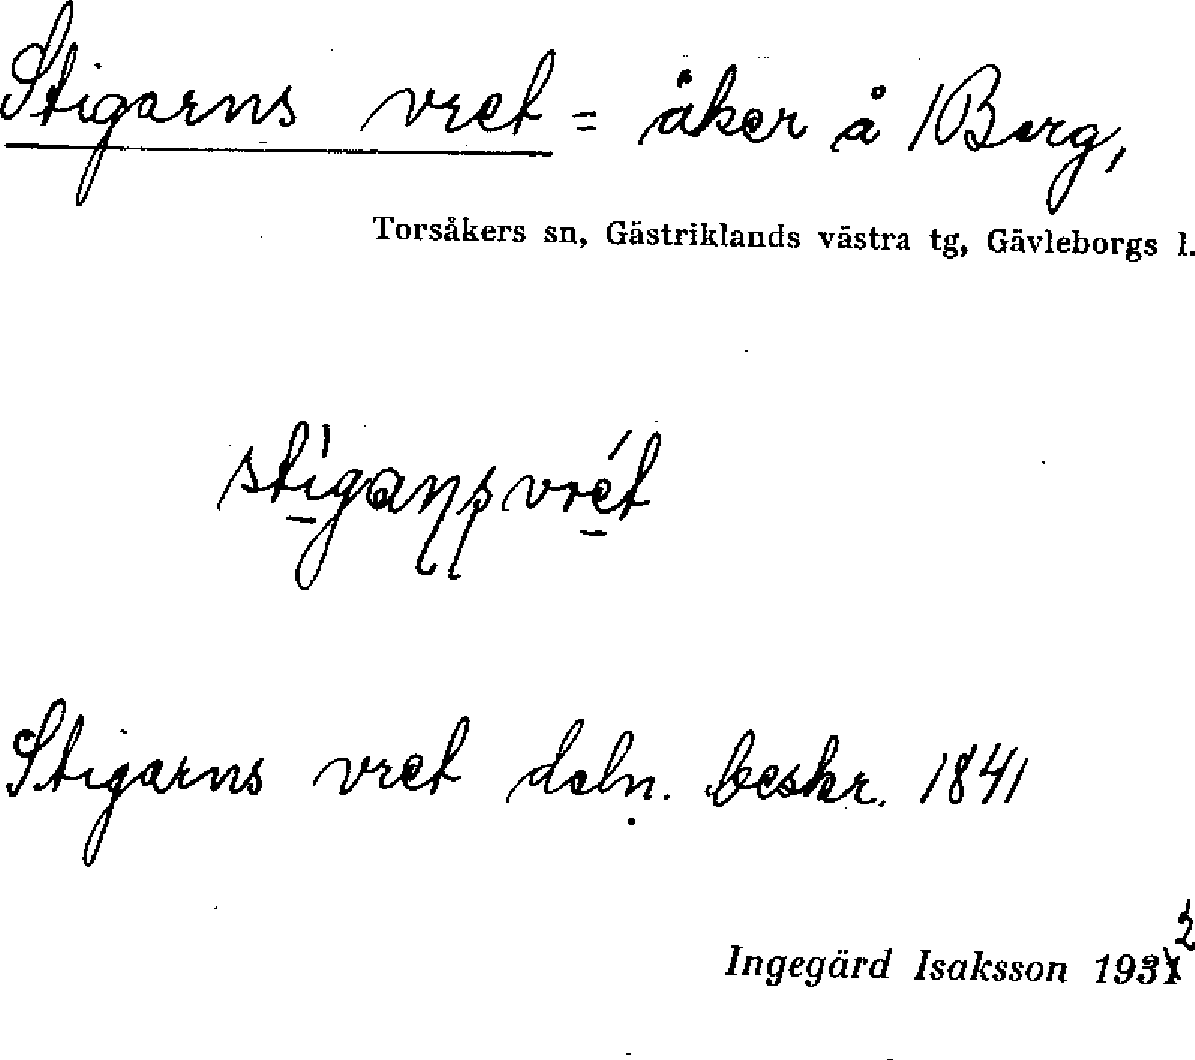 Stigarns vret = åker å Berg,
Torsåkers sn, Gästriklands västra tg, Gävleborgs l.
Stigarns vret deln. beskr. 1841
Ingegärd Isaksson 1932